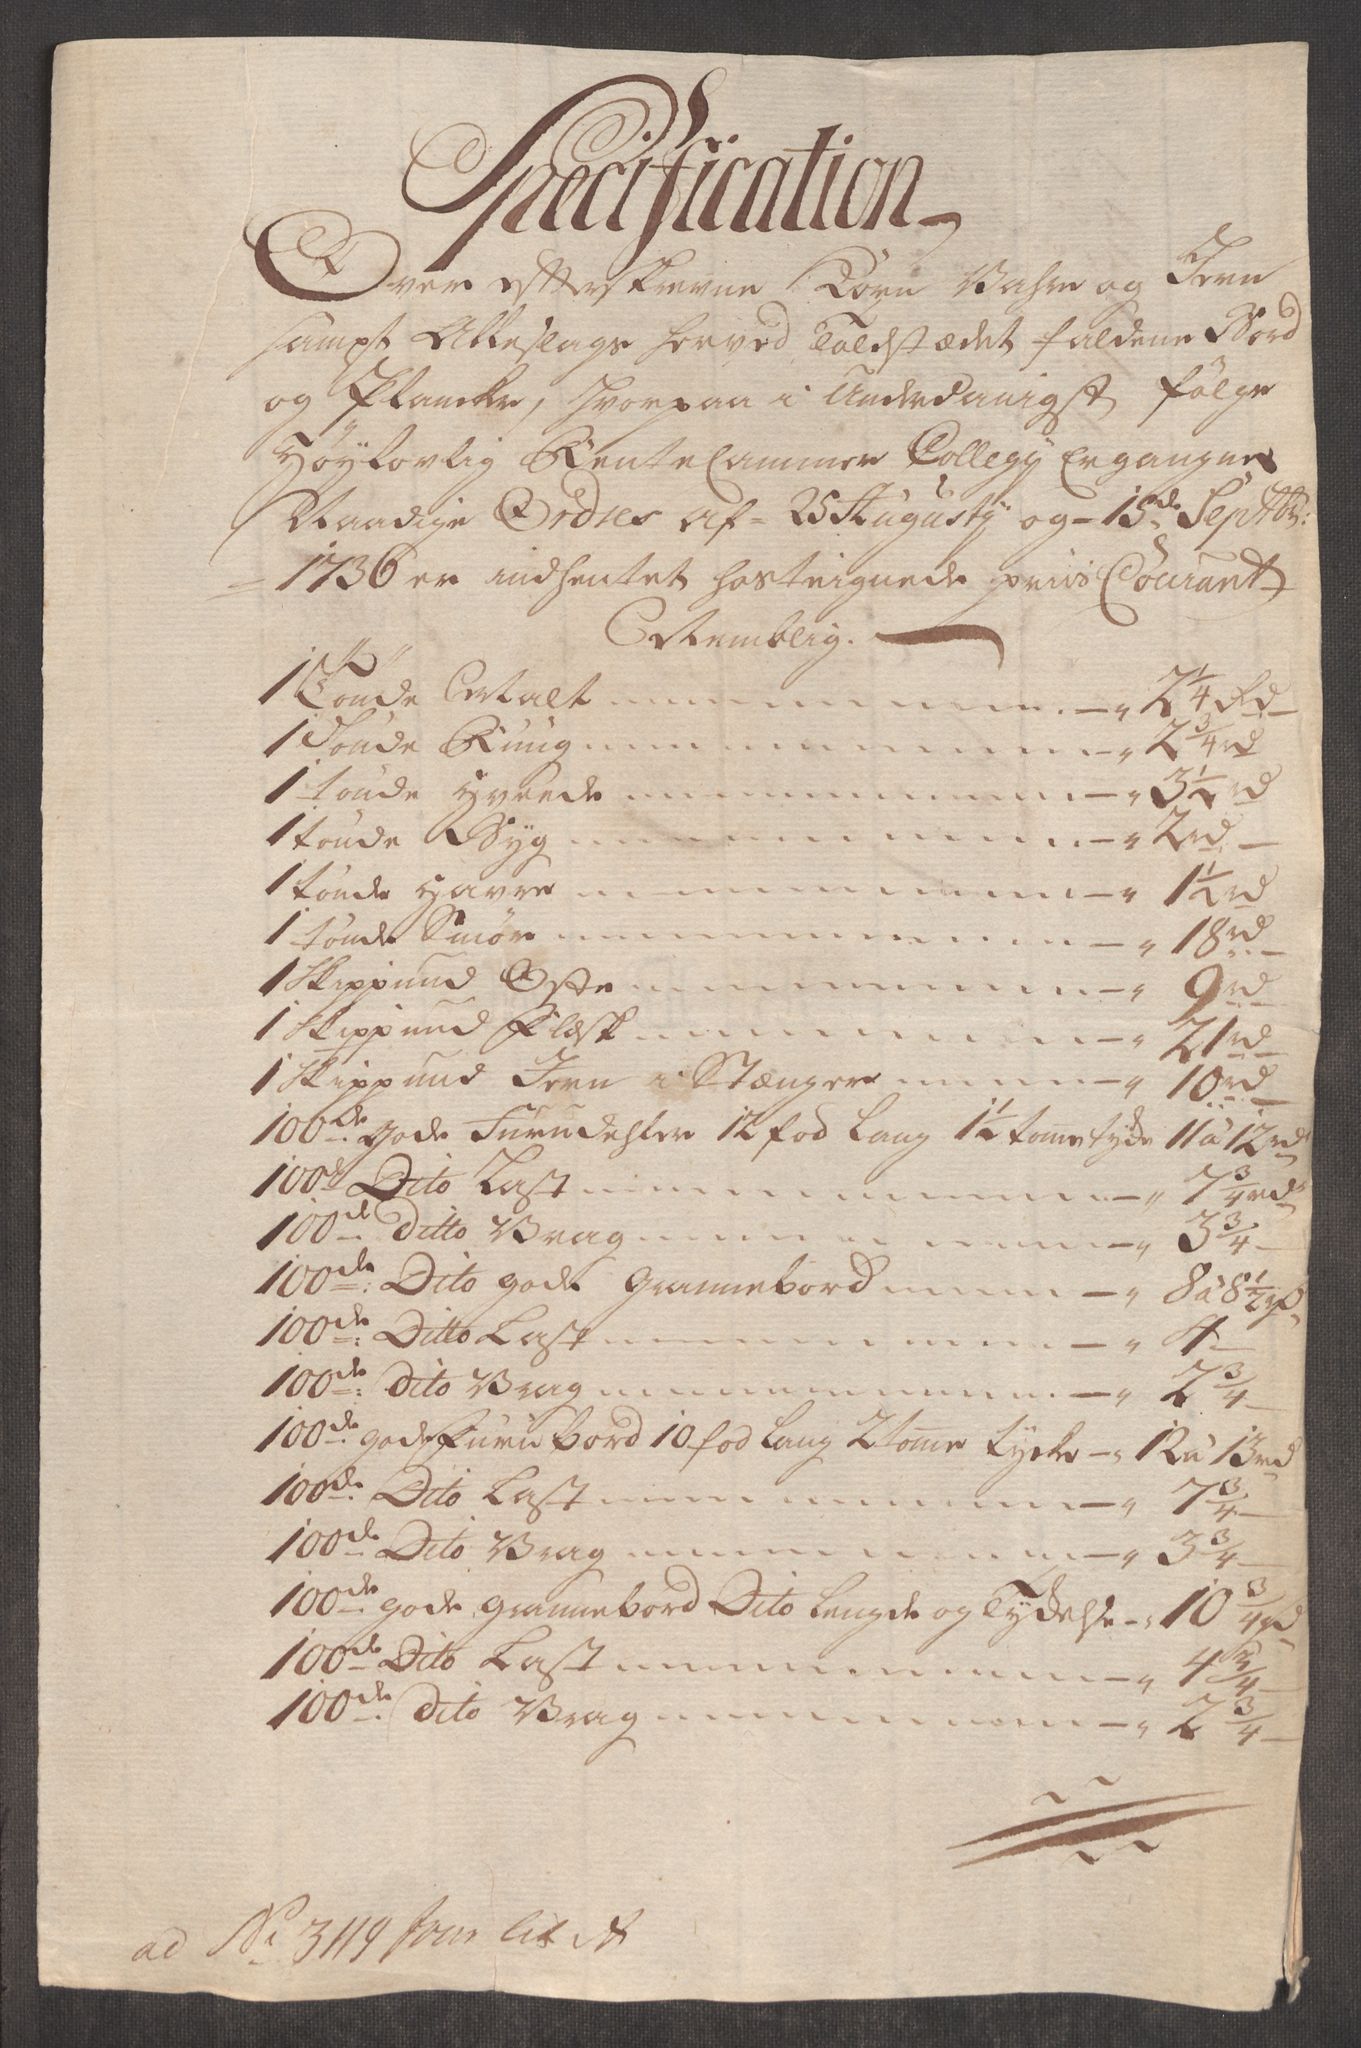 Specification
Over efterskrevne Korn Vahre og Jern
sampt Alleslags herved Toldstædet faldene Bord
og Plancker, hvorpaa i Underdanigst følge
Høylovlig Rente Cammer Collegy Ergangne
Naadige Ordres af 25 Augusty og 15de Septbr:
1736 er indhentet hosteignede priis Courant
Nemblig.
1 Tønde Malt 2 1/4 Rd
1 Tønde Rúúg 2 3/4 rd
1 tønde Hveede 3 1/2 rd
1 tønde Byg 2 rd
1 tønde Havre 1 1/2 rd
1 tønde Smør 18 rd
1 Skippund Oste 9 rd
1 Skippund Flæsk 21 rd
1 Skippund Jern i Stænger 10 rd
100de gode Furudehler 12 fod lang 1 1/2 tome tyde 11 a 12 rd
100de Dito Last 7 3/4 rd
100de Ditto Vrag 3 3/4
100de: Dito gode Grannebord 8 a 8 1/2 rd
100de: Ditto Last 4
100de: Dito Vrag 2 3/4
100de gode furu bord 10 fod lang 2 tome tycke 12 a 13 rd
100de Dito Last 7 3/4
100de Dito Vrag 3 3/4
100de gode grannebord Dito lengde og Tydelse 10 3/4 rd
100de Dito Last 4 3/4
100de Dito Vrag 2 3/4
ad No 3119 Jour lit A